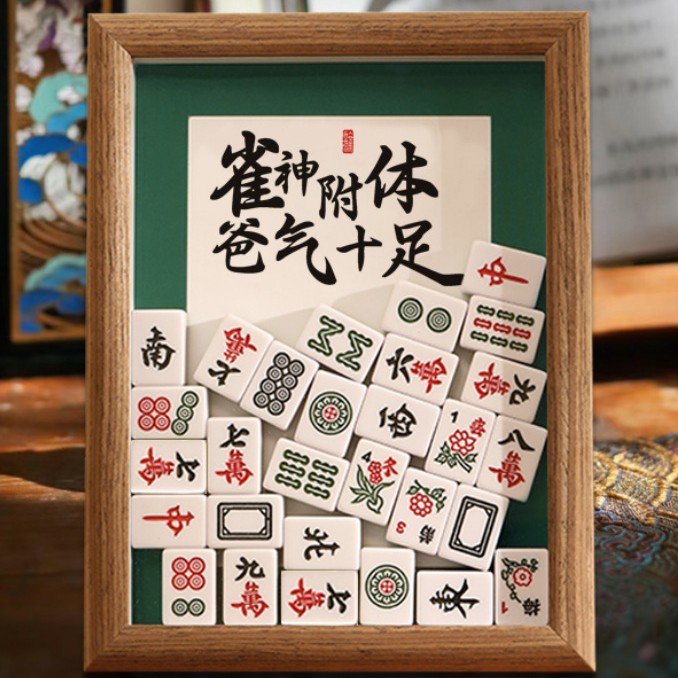 雀神附体
爸气十足
中
南
六萬
六萬
九萬
西
1
八萬
七萬
七萬
4 冬
3
中
北
九萬
七萬
東
1